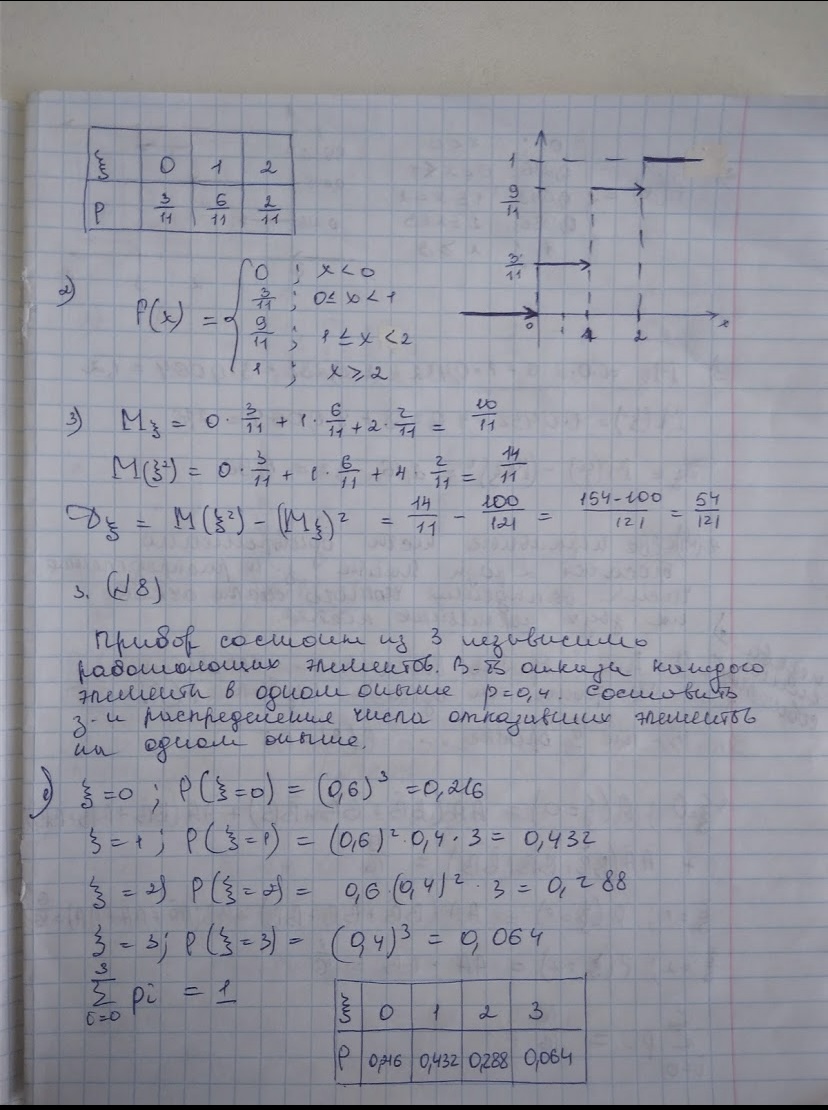 ξ 0 1 2
P 3/11 6/11 2/11
1
9/11
3/11
0 1 2 x
2) P(x) = { 0 ; x < 0
3/11 ; 0 ≤ x < 1
9/11 ; 1 ≤ x < 2
1 ; x ≥ 2
3) Mξ = 0 · 3/11 + 1 · 6/11 + 2 · 2/11 = 10/11
M(ξ²) = 0 · 3/11 + 1 · 6/11 + 4 · 2/11 = 14/11
Dξ = M(ξ²) - (Mξ)² = 14/11 - 100/121 = 154-100/121 = 54/121
3. (№8)
Прибор состоит из 3 независимо
работающих элементов. В-ть отказа каждого
элемента в одном опыте p=0,4. Составить
з-н распределения числа отказавших элементов
на одном опыте.
1) ξ=0 ; P(ξ=0) = (0,6)³ = 0,216
ξ=1 ; P(ξ=1) = (0,6)²·0,4·3 = 0,432
ξ=2) P(ξ=2) = 0,6·(0,4)²·3 = 0,288
ξ=3; P(ξ=3) = (0,4)³ = 0,064
3 Σ i=0 pi = 1
ξ 0 1 2 3
P 0,216 0,432 0,288 0,064